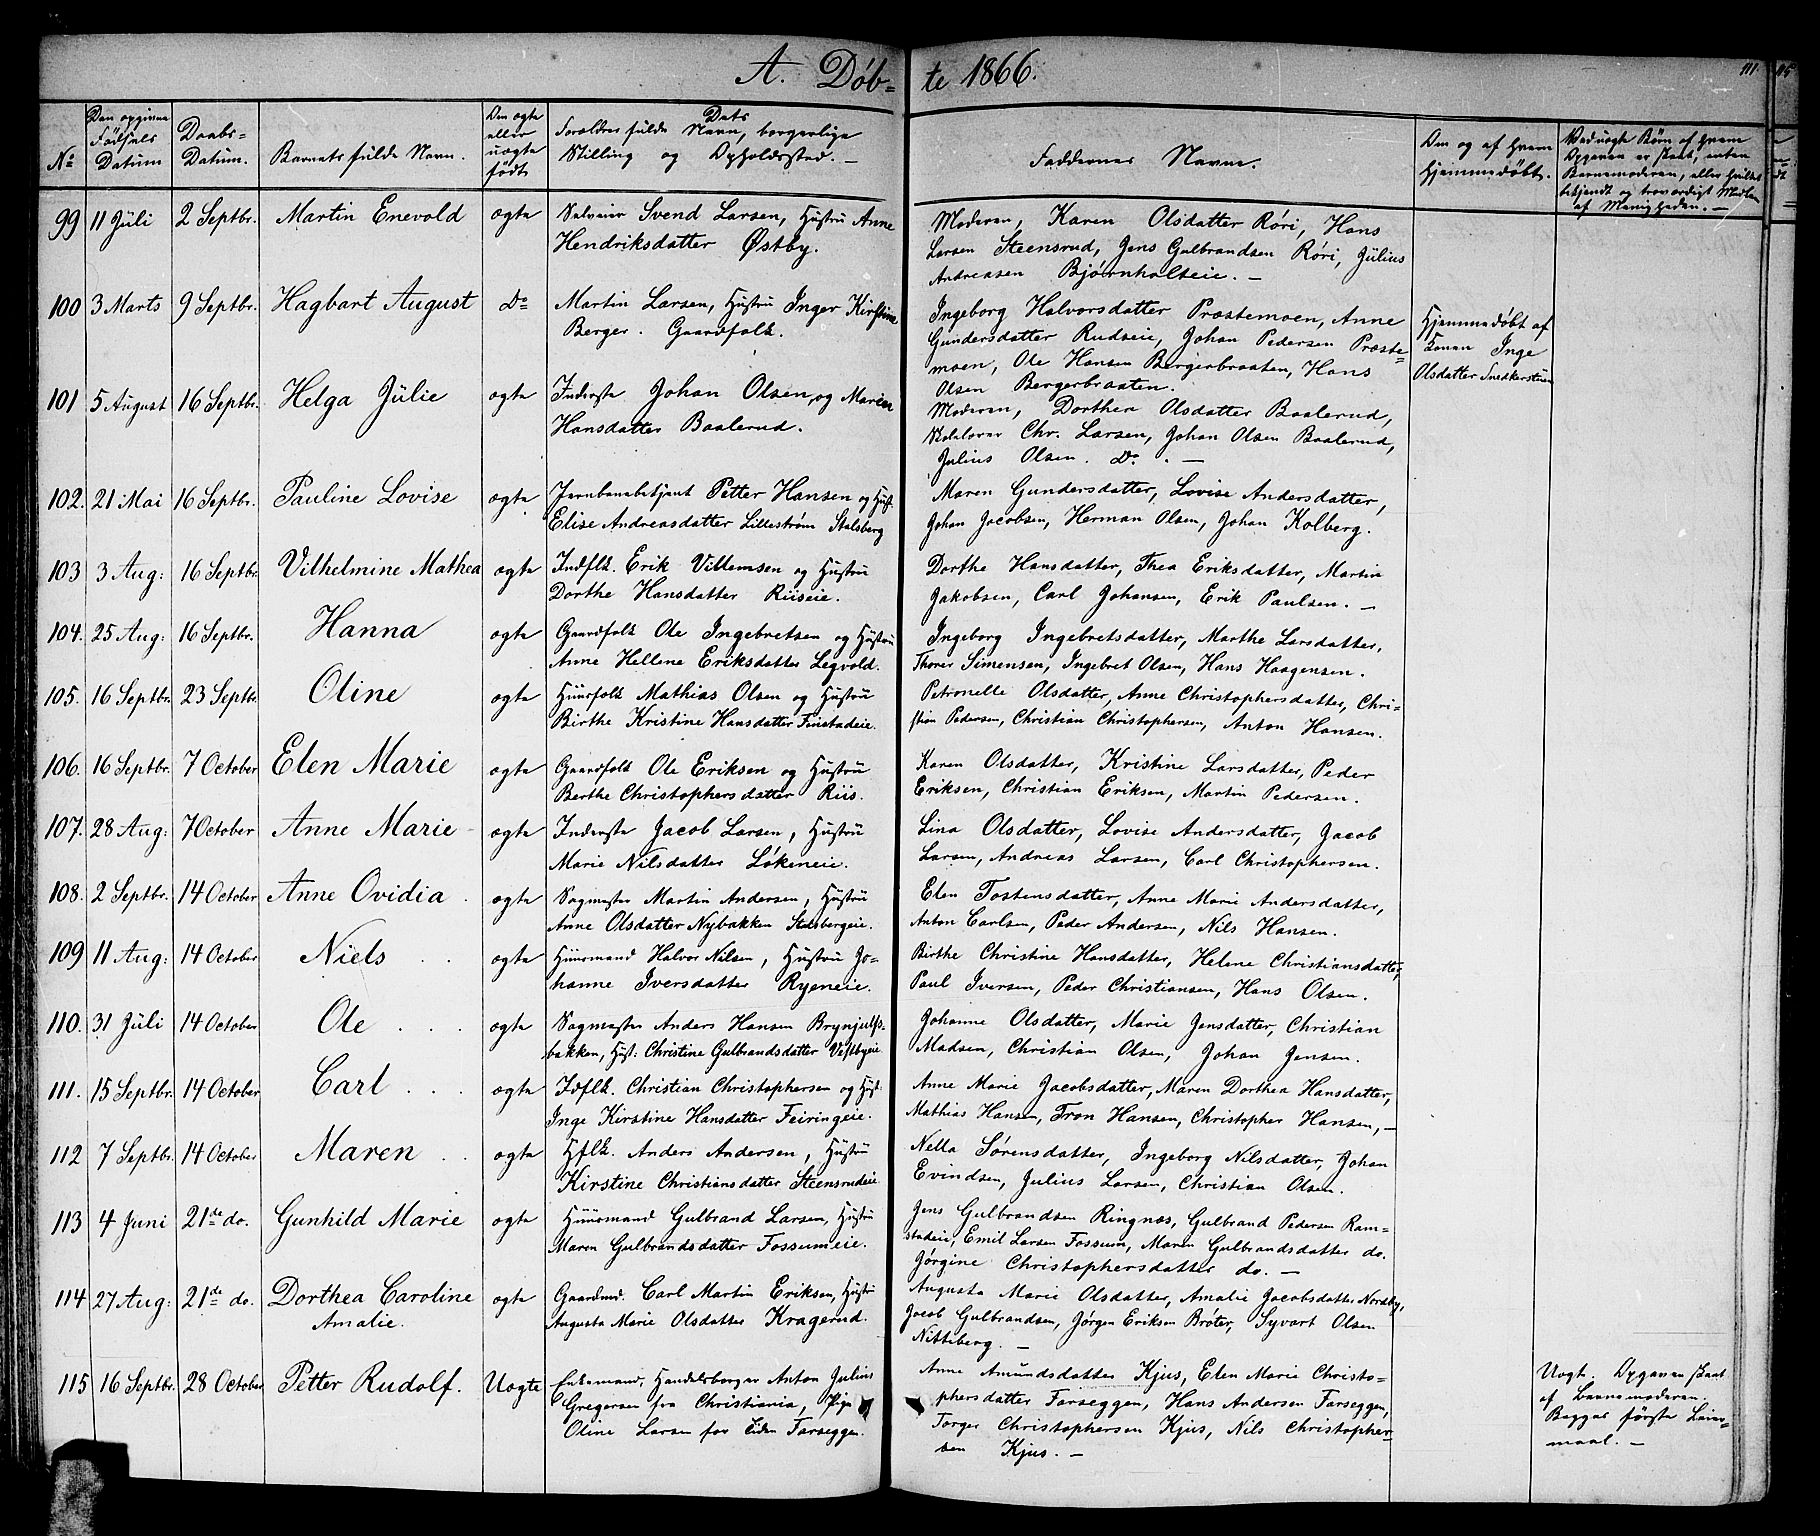 A. Døb-
te 1866.
111
No
Den opgivne Fødsels Datum
Daabs-Datum.
Barnets fulde Navn.
Om ægte eller uægte født
Forældres fulde Navn, borgerlige Stilling og Opholdssted. —
Faddernes Navne.
Om og af hvem hjemmedøbt.
Ved uægte Børn af hvem Opgaven er skeet, enten Barnemoderen, eller hvilket bekjendt og troværdigt Medlem af Menigheden. —
99 11 Júli 2 Septbr. Martin Enevold ægte Selveier Svend Larsen, Hustrú Anne
Hendriksdatter Østby.
Moderen, Karen Olsdatter Røri, Hans
Larsen Steensrud, Jens Gulbrandsen Røri, Július
Andreasen Bjørnholseie. —
100 3 Marts 9 Septbr. Hagbart August Do Martin Larsen, Hustrú Inger Kirstine
Berger. Gaardfolk.
Ingeborg Halvorsdatter Præstemoen, Anne
Gundersdatter Rudseie, Johan Pedersen Præste-
moen, Ole Hansen Bergerbraaten, Hans
Olsen Bergerbraaten.
Hjemmedøbt af
Konen Inge
Olsdatter Snedkerstuen
101 5 August 16 Septbr. Helga Júlie ægte Inderste Johan Olsen, og Maren
Hansdatter Baalerud.
Moderen, Dorthea Olsdatter Baalerud,
Skolelærer Chr. Larsen, Johan Olsen Baalerud,
Julius Olsen. Do. —
102. 21 Mai 16 Septbr. Pauline Lovise ægte Jernbanebetjent Petter Hansen og Hust.
Elise Andreasdatter Lillestrøm Stalsberg
Maren Gundersdatter, Lovise Andersdatter,
Johan Jacobsen, Herman Olsen, Johan Kolberg.
103 3 Aug: 16 Septbr. Vilhelmine Mathea ægte Indflk. Erik Villemsen og Hustrú
Dorthe Hansdatter Riiseie.
Dorthe Hansdatter, Thea Eriksdatter, Martin
Jakobsen, Carl Johansen, Erik Paulsen. —
104. 25 Aug: 16 Septbr. Hanna ægte Gaardfolk Ole Ingebretsen og Hustrú
Anne Hellene Eriksdatter Legvold.
Ingeborg Ingebretsdatter, Marthe Larsdatter,
Thorer Simensen, Ingebret Olsen, Hans Haagensen.
105. 16 Septbr. 23 Septbr. Oline ægte Húúsfolk Mathias Olsen og Hustrú
Birthe Kristine Hansdatter Finstadeie.
Petronelle Olsdatter, Anne Christophersdatter, Chri-
stian Pedersen, Christian Christophersen, Anton Hansen.
106. 16 Septbr. 7 October Elen Marie ægte Gaardfolk Ole Eriksen og Hustrú
Berthe Christophersdatter Riis.
Karen Olsdatter, Kristine Larsdatter, Peder
Eriksen, Christian Eriksen, Martin Pedersen.
107. 28 Aug: 7 October Anne Marie ægte Inderste Jacob Larsen, Hustrú
Marie Nilsdatter Løkeneie.
Lina Olsdatter, Lovise Andersdatter, Jacob
Larsen, Andreas Larsen, Carl Christophersen.
108. 2 Septbr. 14 October Anne Ovidia ægte Sagmester Martin Andersen, Hustrú
Anne Olsdatter Nybakken Stalsbergeie.
Elen Tostensdatter, Anne Marie Andersdatter,
Anton Carlsen, Peder Andersen, Nils Hansen.
109 11 Aug: 14 October Niels ægte Húúsmand Halvor Nilsen, Hustrú Jo-
hanne Iversdatter Ryeneie.
Birthe Christine Hansdatter, Helene Christiansdatter,
Paul Iversen, Peder Christiansen, Hans Olsen.
110. 31 Júli 14 October Ole ægte Sagmester Anders Hansen Brynjulfs-
bakken, Hust: Christine Gulbrandsdatter Vestbyeie
Johanne Olsdatter, Marie Jensdatter, Christian
Madsen, Christian Olsen, Johan Jensen.
111. 15 Septbr. 14 October Carl ægte Idflk. Christian Christophersen og Hust:
Inge Kirstine Hansdatter Feiringeie.
Anne Marie Jacobsdatter, Maren Dorthea Hansdatter,
Mathias Hansen, Tron Hansen, Christopher Hansen, —
112 7 Septbr. 14 October Maren ægte Hflk. Anders Andersen, Hustrú
Kirstine Christiansdatter Steensrudeie
Nella Sørensdatter, Ingeborg Nilsdatter, Johan
Evindsen, Julius Larsen, Christian Olsen.
113 4 Juni 21de do. Gunhild Marie ægte Húúsmand Gulbrand Larsen, Hustrú
Maren Gulbrandsdatter Fossumeie.
Jens Gulbrandsen Ringnæs, Gulbrand Pedersen Ram-
stadeie, Emil Larsen Fossum, Maren Gulbrandsdatter do.
Jørgine Christophersdatter do. —
114 27 Aug: 21de do. Dorthea Caroline
Amalie. ægte Gaardmd. Carl Martin Eriksen, Hustrú
Augusta Marie Olsdatter Kragerud.
Augusta Marie Olsdatter, Amalie Jacobsdatter Nordby,
Jacob Gulbrandsen, Jørgen Eriksen Brøter, Syvart Olsen
Nitteberg. —
115 16 Septbr. 28 October Petter Rudolf. Uægte Enkemand, Handelsborger Anton Julius
Gregersen fra Christiania, Pige
Oline Larsen for Tiden Farseggen.
Anne Amundsdatter Kjus, Elen Marie Christo-
phersdatter Farseggen, Hans Andersen Farseggen,
Torger Christophersen Kjus, Nils Christopher-
sen Kjus. —
Uægt. Opgaven skeet
af Barnemoderen.
Begges første Leier-
maal. —